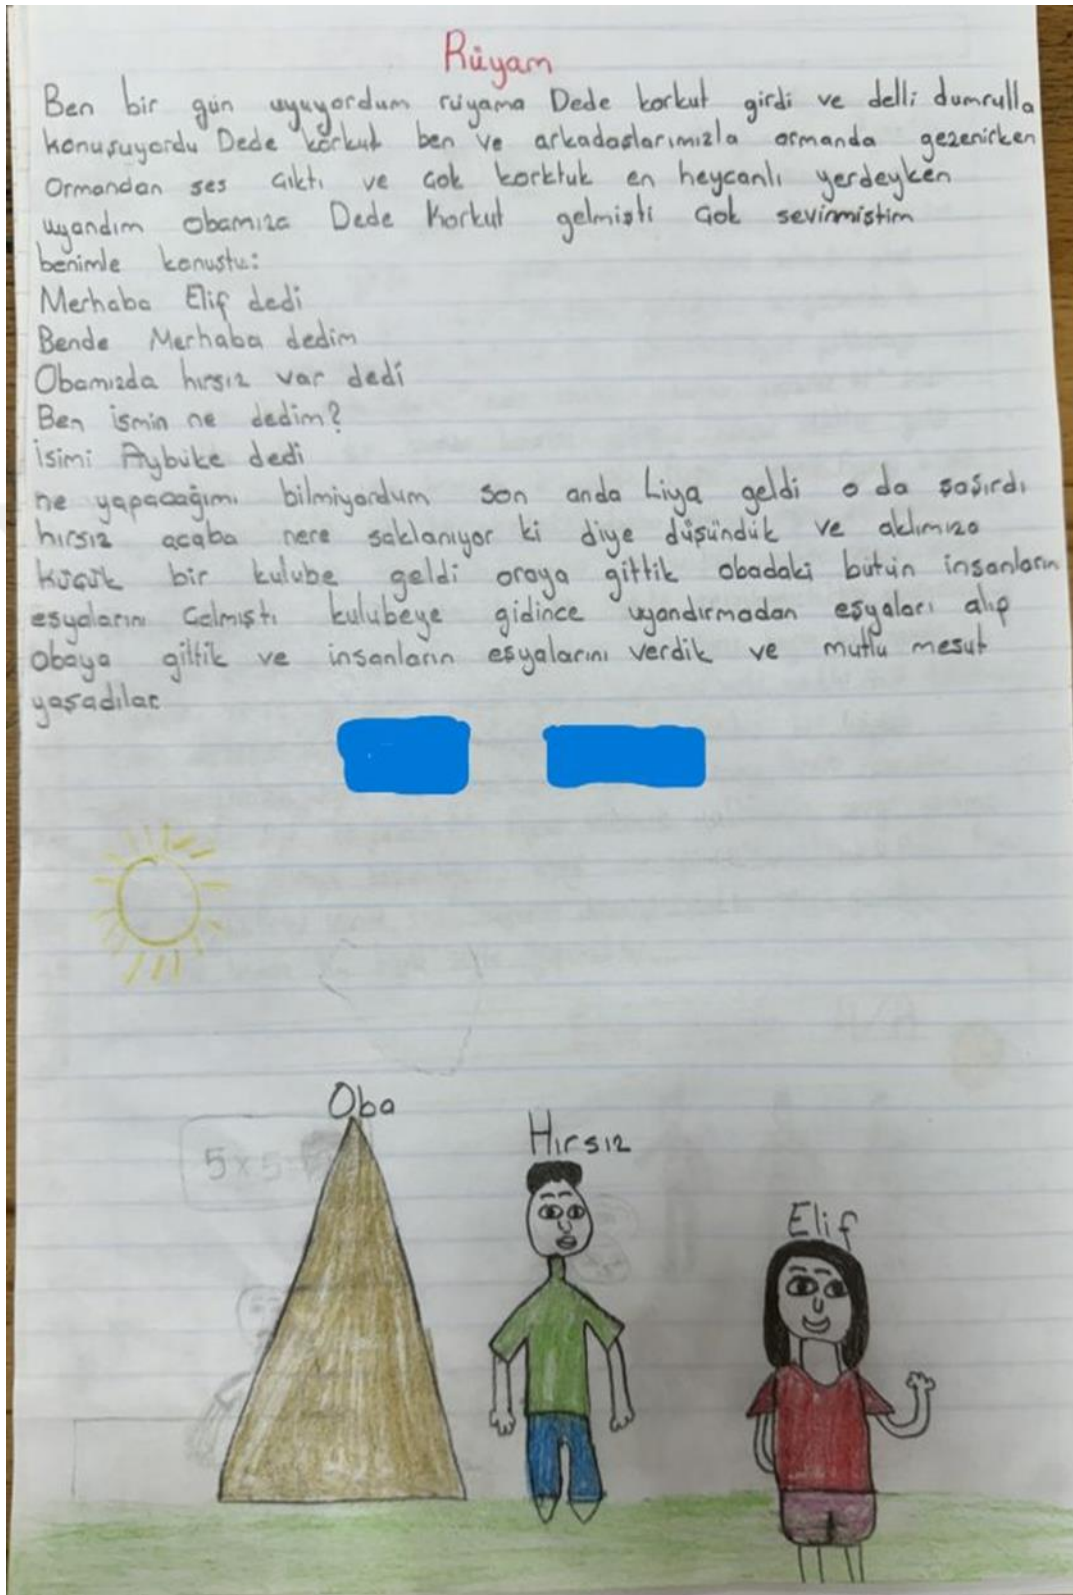 Rüyam
Ben bir gün uyuyordum rüyama Dede korkut girdi ve delli dumrulla
konuşuyordu Dede korkut ben ve arkadaslarımızla ormanda gezenirken
Ormandan ses çıktı ve çok korktuk en heycanlı yerdeyken
uyandım obamıza Dede Korkut gelmişti çok sevinmistim
benimle konustu:
Merhaba Elif dedi
Bende Merhaba dedim
Obamızda hırsız var dedi
Ben ismin ne dedim?
isimi Aybüke dedi
ne yapacağımı bilmiyordum son anda Liya geldi o da şaşırdı
hırsız acaba nere saklanıyor ki diye düşündük ve aklımıza
küçük bir kulube geldi oraya gittik obadaki bütün insanların
eşyalarını çalmıştı kulubeye gidince uyandırmadan eşyaları alıp
obaya gittik ve insanların eşyalarını verdik ve mutlu mesut
yaşadılar
Oba
Hırsız
5x5
Elif